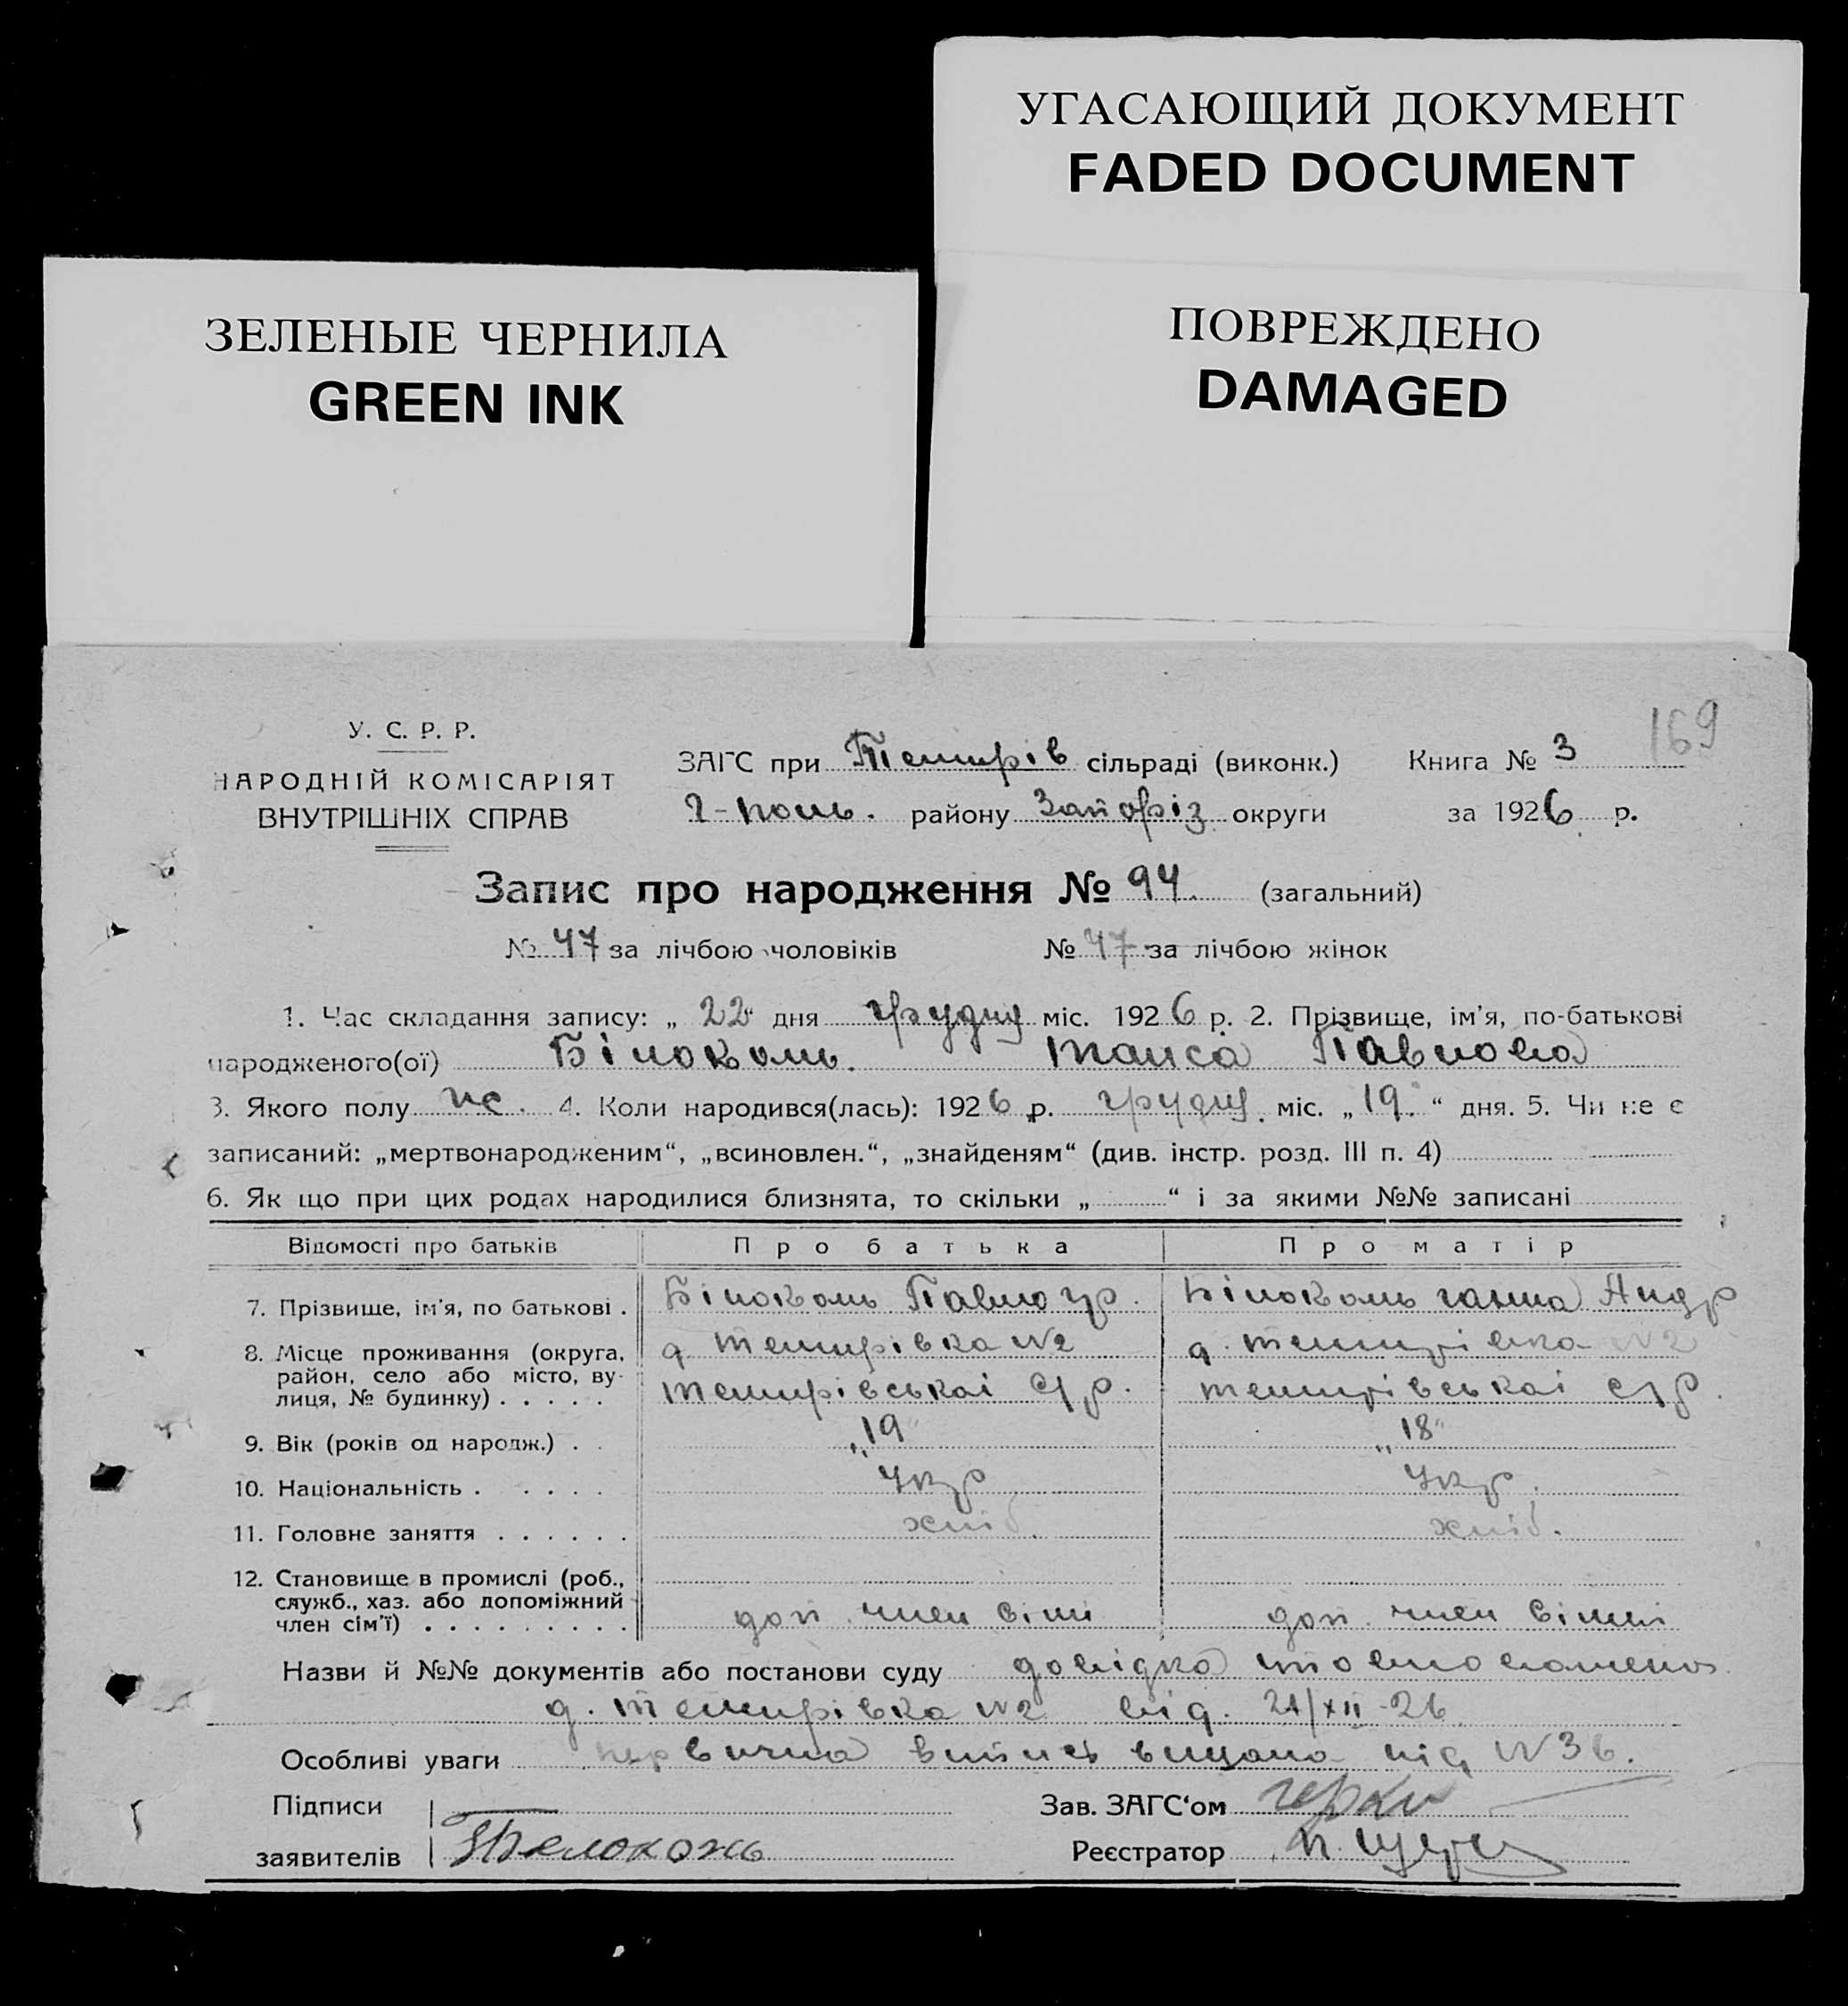 УГАСАЮЩИЙ ДОКУМЕНТ
FADED DOCUMENT
ЗЕЛЕНЫЕ ЧЕРНИЛА
GREEN INK
ПОВРЕЖДЕНО
DAMAGED
169
У. С. Р. Р.
НАРОДНІЙ КОМІСАРІЯТ
ВНУТРІШНІХ СПРАВ
ЗАГС при Темирів сільраді (виконк.) Книга № 3
Г-поль. району Запоріз. округи за 1926 р.
Запис про народження № 94. (загальний)
№ 47 за лічбою чоловіків № 47 за лічбою жінок
1. Час складання запису: „22“ дня грудня міс. 1926 р. 2. Прізвище, ім’я, по-батькові
народженого(ої) Білоконь. Таиса Павлова
3. Якого полу жс. 4. Коли народився(лась): 1926 р. грудня. міс. „19.“ дня. 5. Чи не є
записаний: „мертвонародженим“, „всиновлен.“, „знайденям“ (див. інстр. розд. III п. 4)
6. Як що при цих родах народилися близнята, то скільки „ “ і за якими №№ записані
Відомості про батьків Про батька Про матір
7. Прізвище, ім’я, по батькові . Білоконь Павло гр. Білоконь ганна Андр
8. Місце проживання (округа, район, село або місто, вулиця, № будинку) . . . . .
д Темирівка №2 д. Темирівка №2
Темирівскоі с/р. Темирівськоі с/р.
9. Вік (років од народж.) . . „19“ „18“
10. Національність . . . . . Укр Укр.
11. Головне заняття . . . . . . хліб. хліб.
12. Становище в промислі (роб.,
служб., хаз. або допоміжний
член сім’ї) . . . . . . . . . доп. член сімі доп. член сімьі
Назви й №№ документів або постанови суду довідка
д. Темирівка №2 від. 21/XII-26
Особливі уваги первична випись видана під №36.
Підписи
заявителів Белоконь
Зав. ЗАГС‘ом
Реєстратор П.